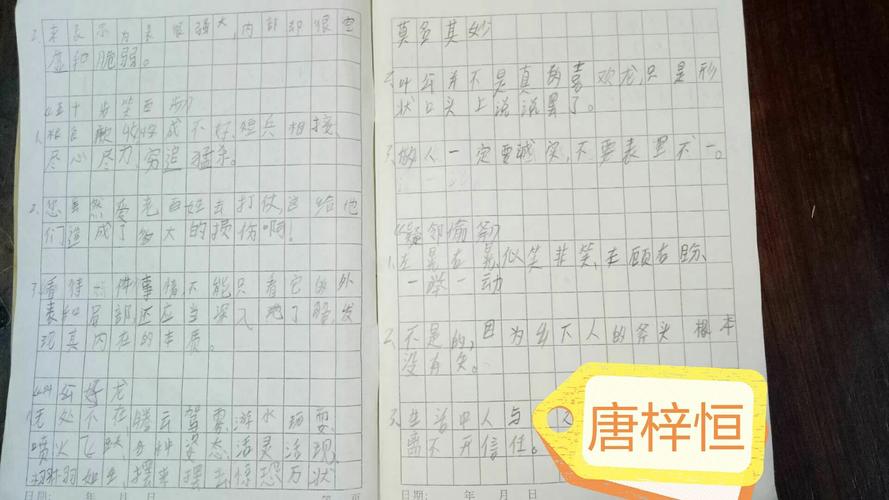 来表示为表很强大,内部却很空
虚和脆弱。
《五十步笑百步》
收成不好,短兵相接、
尽心尽力、穷追猛杀。
2、您虽然爱老百姓去打仗,这给他
们造成了多大的损伤啊!
3、看待一件事情,不能只看它的外
表和局部,还应当深入地了解,发
现其内在的本质。
《叶公好龙
无处不在、腾云驾雾、游水玩耍、
喷火飞跃、各种姿态、活灵活现、
栩栩如生、摆来摆去、惊恐万状
日期: 年 月 日
莫名其妙
2、叶公并不是真的喜欢龙,只是形
状口头上说说罢了。
3、做人一定要诚实,不要表里不一。
《疑邻偷斧》
1、左晃右晃、似笑非笑、左顾右盼、
一举一动
2、不是的,因为乡下人的斧头根本
没有失。
3、生活中人与人
离不开信任。
日期: 年 月 日
唐梓恒